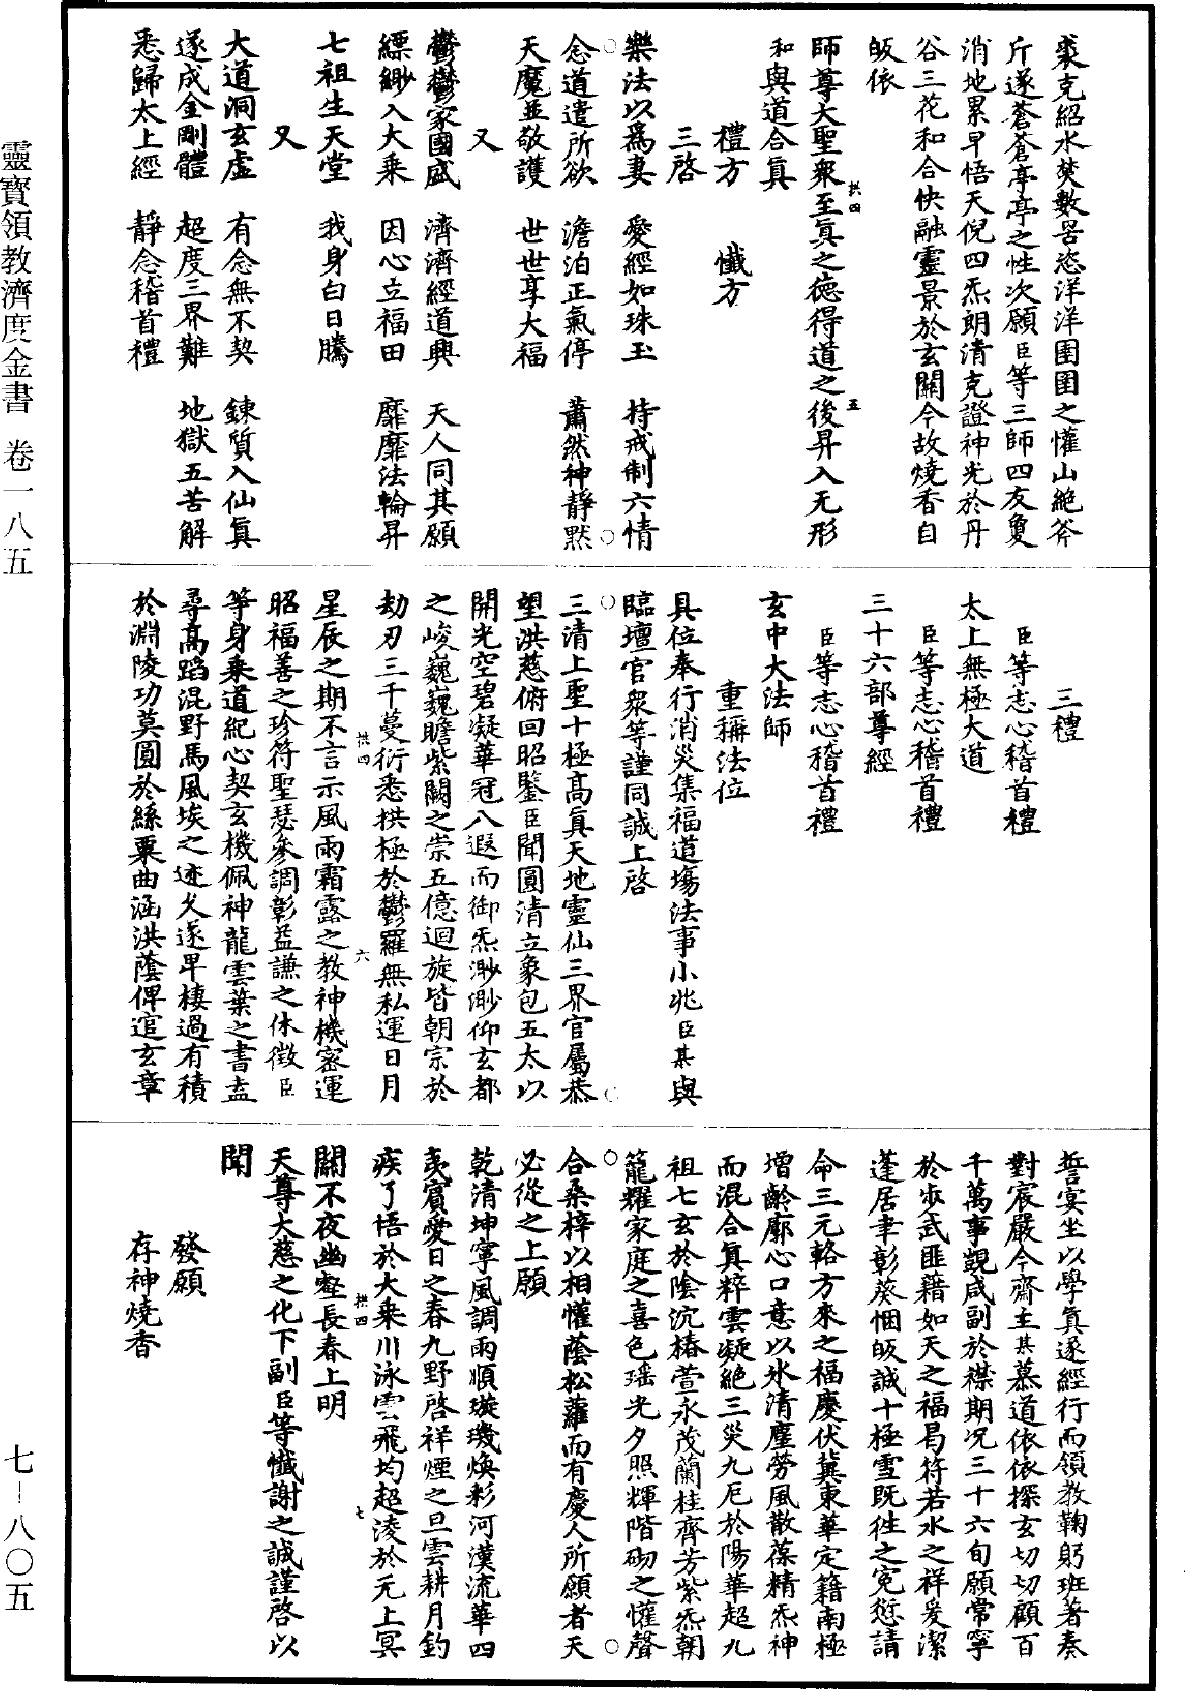 裘克紹水焚數罟恣洋洋圉圉之懽山絕斧
斤遂蒼蒼亭亭之性次願臣等三師四友夐
消地累早悟天倪四炁朗清克證神光於丹
谷三花和合快融靈景於玄關今故燒香自
皈依
師尊大聖衆至眞之德得道之後昇入无形
和與道合眞
禮方 懺方
三啓
樂法以爲妻 愛經如珠玉 持戒制六情
念道遣所欲 澹泊正氣停 蕭然神靜默
天魔並敬護 世世享大福
又
鬱鬱家國盛 濟濟經道興 天人同其願
縹緲入大乘 因心立福田 靡靡法輪昇
七祖生天堂 我身白日騰
又
大道洞玄虛 有念無不契 鍊質入仙眞
遂成金剛體 超度三界難 地獄五苦解
悉歸太上經 靜念稽首禮
三禮
臣等志心稽首禮
太上無極大道
臣等志心稽首禮
三十六部尊經
臣等志心稽首禮
玄中大法師
重稱法位
具位奉行消災集福道塲法事小兆臣某與
臨壇官衆等謹同誠上啓
三清上聖十極高眞天地靈仙三界官屬恭
望洪慈俯回昭鑒臣聞圓清立象包五太以
開光空碧凝華冠八遐而御炁渺渺仰玄都
之峻巍巍瞻紫闕之崇五億迴旋皆朝宗於
劫刃三千蔓衍悉拱極於鬱羅無私運日月
星辰之期不言示風雨霜露之教神機密運
昭福善之珍符聖瑟參調彰益謙之休徵臣
等身乘道紀心契玄機佩神龍雲葉之書盍
尋高蹈混野馬風埃之迹久遂卑棲過有積
於淵陵功莫圓於絲粟曲涵洪蔭俾逭玄章
誓宴坐以學眞遂經行而領教鞠躬班著奏
對宸嚴今齋主某慕道依依探玄切切顧百
千萬事覬咸副於襟期況三十六旬願常寧
於步武匪藉如天之福曷符若水之祥爰潔
蓬居聿彰葵悃皈誠十極雪既徃之寃愆請
命三元輅方來之福慶伏冀東華定籍南極
增齡廓心口意以氷清塵勞風散葆精炁神
而混合眞粹雲凝絕三災九厄於陽華超九
祖七玄於陰沉椿萱永茂蘭桂齊芳紫炁朝
籠耀家庭之喜色瑶光夕照輝階砌之懽聲
合桑梓以相懽蔭松蘿而有慶人所願者天
必從之上願
乾清坤寧風調雨順璇璣煥彩河漢流華四
夷賓愛日之春九野啓祥煙之旦雲耕月釣
疾了悟於大乘川泳雲飛均超淩於元上冥
關不夜幽壑長春上明
天尊大慈之化下副臣等懺謝之誠謹啓以
聞
發願
存神燒香
拱四
五
拱四
六
拱四
七
靈寶領教濟度金書 卷一八五
七－八〇五